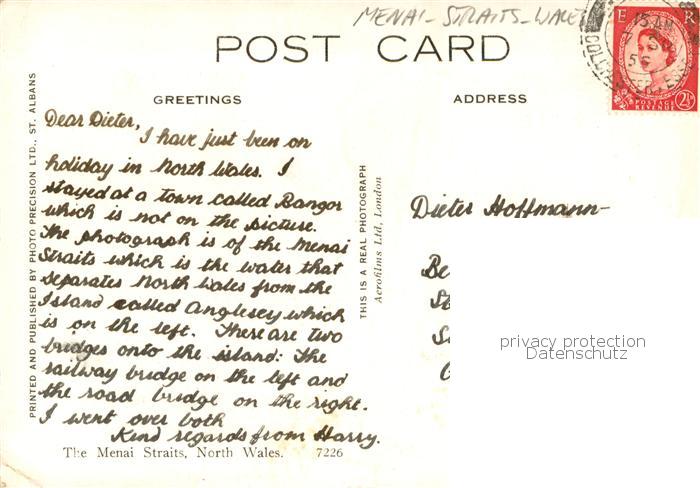 MENAI - STRAITS - WALES
POST CARD
E R
POSTAGE
REVENUE
2½D
GREETINGS
ADDRESS
PRINTED AND PUBLISHED BY PHOTO PRECISION LTD., ST. ALBANS
Dear Dieter,
I have just been on
holiday in North Wales. I
stayed at a town called Bangor
which is not on the picture.
The photograph is of the Menai
Straits which is the water that
separates North Wales from the
Island called Anglesey which
is on the left. There are two
bridges onto the island: The
railway bridge on the left and
the road bridge on the right.
I went over both
Kind regards from Harry.
THIS IS A REAL PHOTOGRAPH
Aerofilms Ltd, London
Dieter Hoffmann-
Be
privacy protection
Datenschutz
The Menai Straits, North Wales. 7226